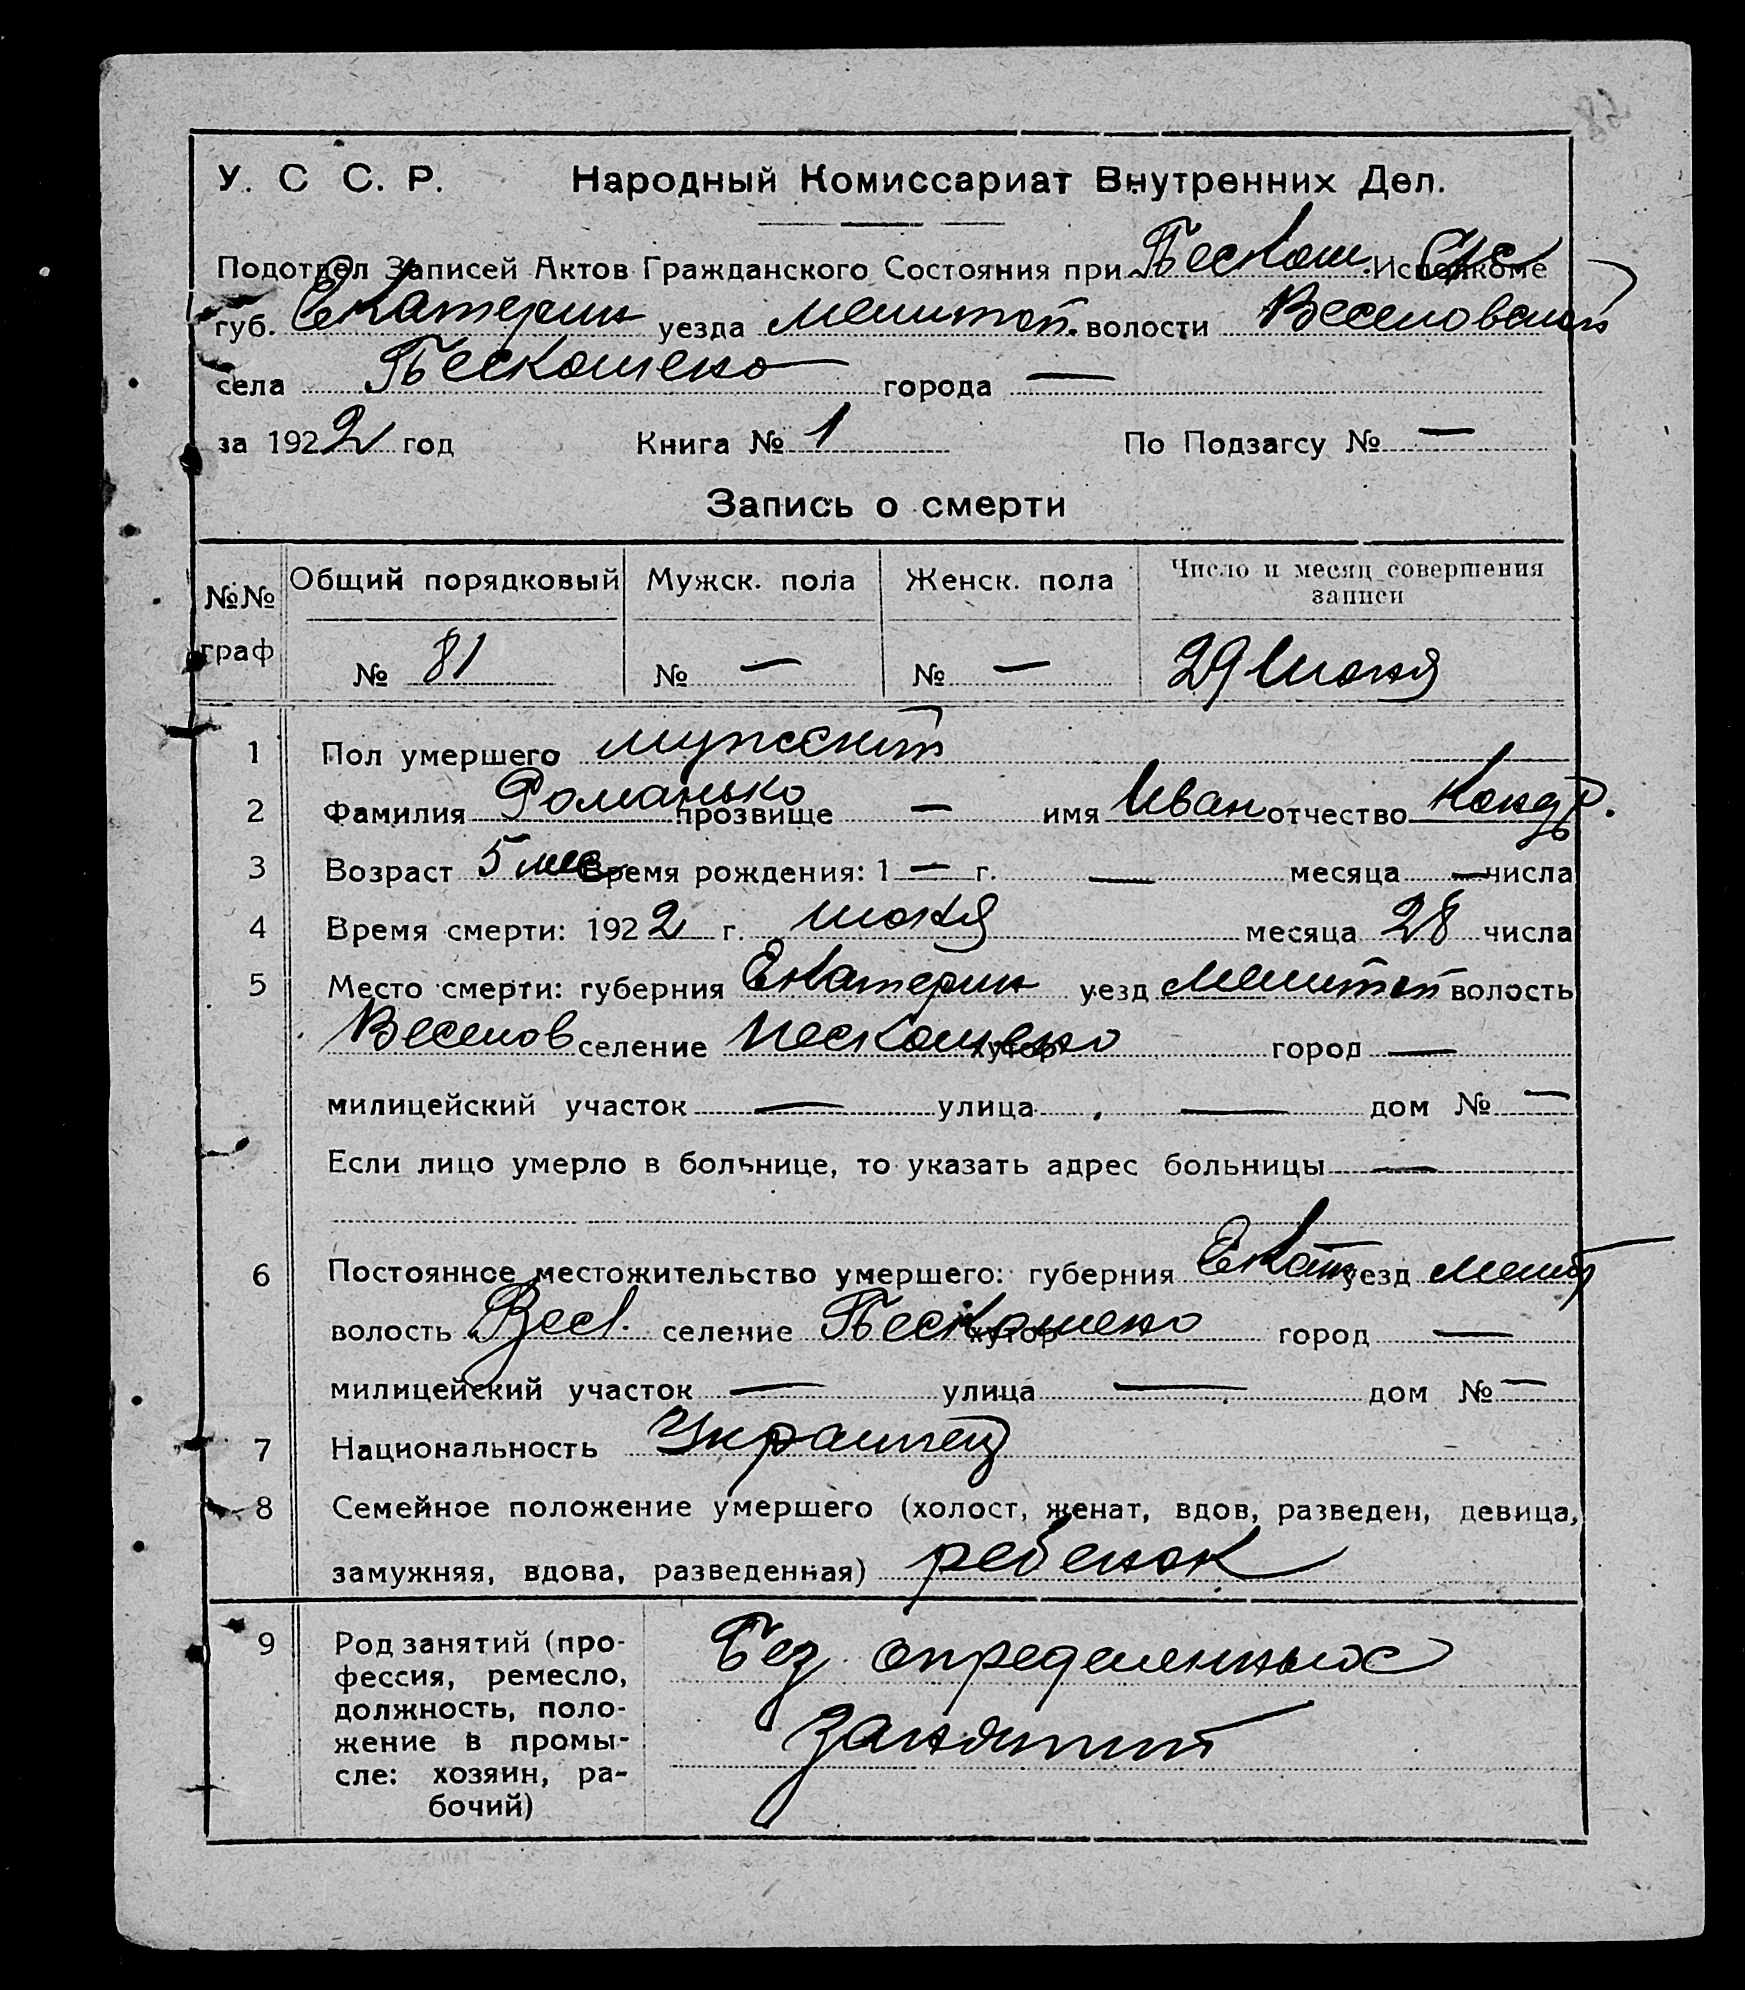 У. С С. Р. Народный Комиссариат Внутренних Дел.
Подотдел Записей Актов Гражданского Состояния при Пескош. Исполкоме
губ. Екатерин уезда Мелитоп. волости Веселовской
села Пескошено города —
за 1922 год Книга № 1 По Подзагсу № —
Запись о смерти
№№ граф Общий порядковый Мужск. пола Женск. пола Число и месяц совершения записи
№ 81 № — № — 29 Июня
1 Пол умершего мужской
2 Фамилия Романько прозвище — имя Иван отчество Кондр.
3 Возраст 5 мес Время рождения: 1 — г. — месяца — числа
4 Время смерти: 1922 г. июня месяца 28 числа
5 Место смерти: губерния Екатерин уезд Мелитоп волость
Веселов селение Пескошено хутор город —
милицейский участок — улица — дом № —
Если лицо умерло в больнице, то указать адрес больницы —
6 Постоянное местожительство умершего: губерния Екат уезд Мелит
волость Весел. селение Пескошено хутор город —
милицейский участок — улица — дом № —
7 Национальность Украинец
8 Семейное положение умершего (холост, женат, вдов, разведен, девица,
замужняя, вдова, разведенная) ребенок
9 Род занятий (про-
фессия, ремесло,
должность, поло-
жение в промы-
сле: хозяин, ра-
бочий)
Без определенных
занятий